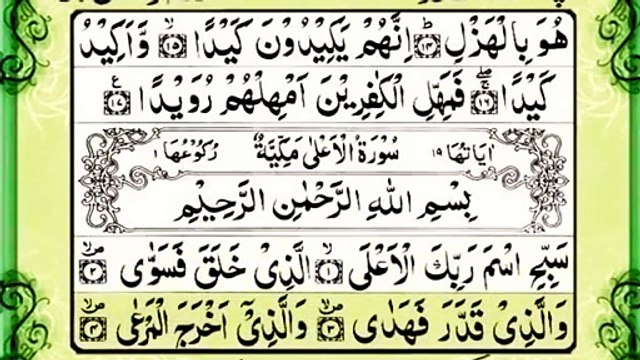 هُوَ بِالْهَزْلِ ﴿۱۴﴾ اِنَّهُمْ يَكِيْدُوْنَ كَيْدًا ﴿۱۵﴾ وَّاَكِيْدُ
كَيْدًا ﴿۱۶﴾ فَمَهِّلِ الْكٰفِرِيْنَ اَمْهِلْهُمْ رُوَيْدًا ﴿۱۷﴾
اٰيَاتُهَا ۱۹ سُوْرَةُ الْاَعْلٰى مَكِّيَّةٌ رُكُوْعُهَا ۱
بِسْمِ اللّٰهِ الرَّحْمٰنِ الرَّحِيْمِ
سَبِّحِ اسْمَ رَبِّكَ الْاَعْلَى ﴿۱﴾ الَّذِىْ خَلَقَ فَسَوّٰى ﴿۲﴾
وَالَّذِىْ قَدَّرَ فَهَدٰى ﴿۳﴾ وَالَّذِىْٓ اَخْرَجَ الْمَرْعٰى ﴿۴﴾